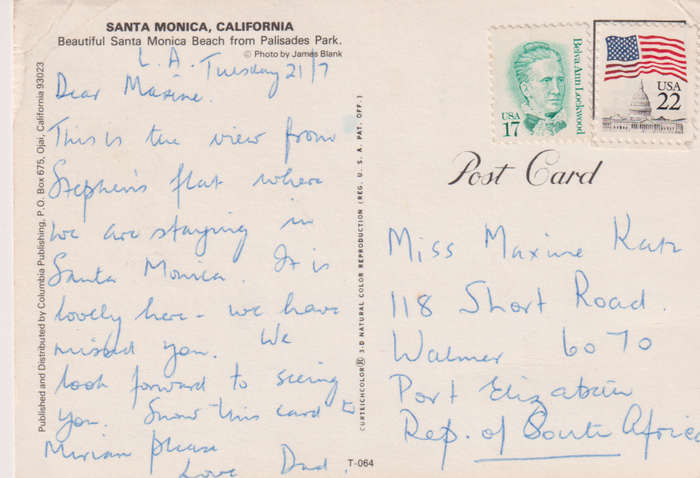 SANTA MONICA, CALIFORNIA
Beautiful Santa Monica Beach from Palisades Park.
© Photo by James Blank
L.A. Tuesday 21/7
Dear Maxine.
This is the view from
Stephen's flat where
we are staying in
Santa Monica. It is
lovely here - we have
missed you. We
look forward to seeing
you. Show this card to
Miriam please
Love Dad.
Published and Distributed by Columbia Publishing, P.O. Box 675, Ojai, California 93023
CURTEICHCOLOR® 3-D NATURAL COLOR REPRODUCTION (REG. U.S.A. PAT. OFF.)
T-064
USA
17
Belva Ann Lockwood
USA
22
Post Card
Miss Maxine Katz
118 Short Road.
Walmer 6070
Port Elizabeth
Rep. of South Africa